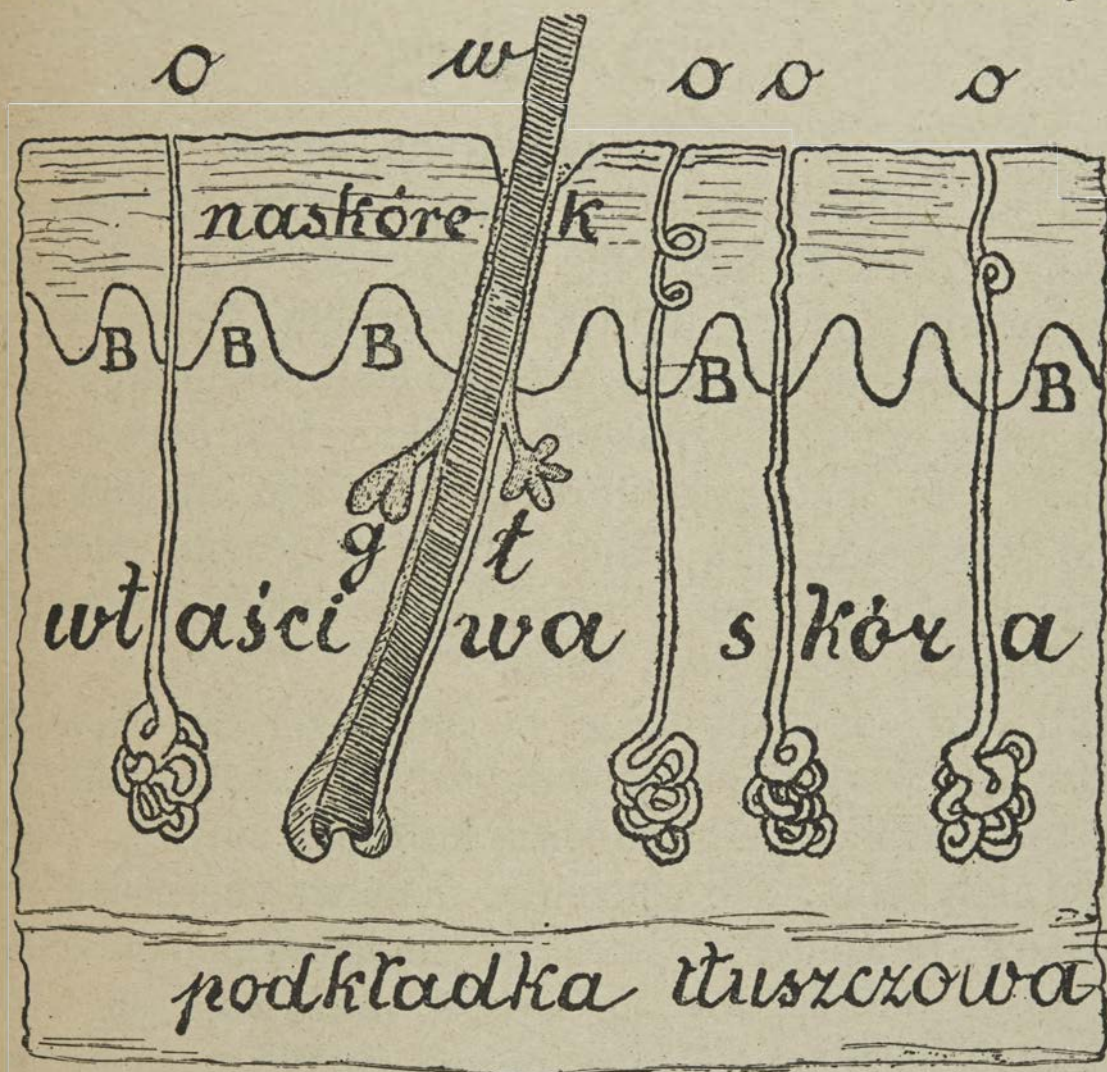 o w o o o
naskórek
B B B B B
g ł
właściwa skóra
podkładka tłuszczowa